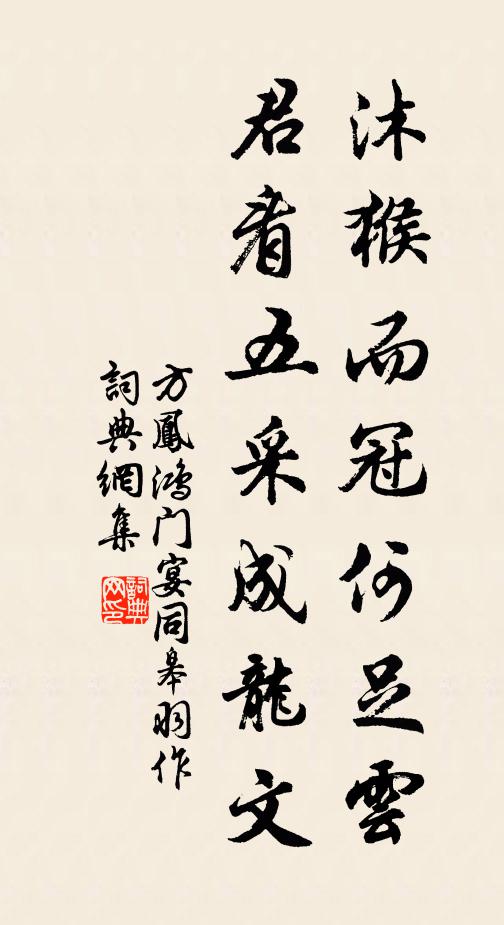 沐猴而冠何足雲
君看五采成龍文
方鳳鴻门宴同皋羽作
詞典網集
詞典網印